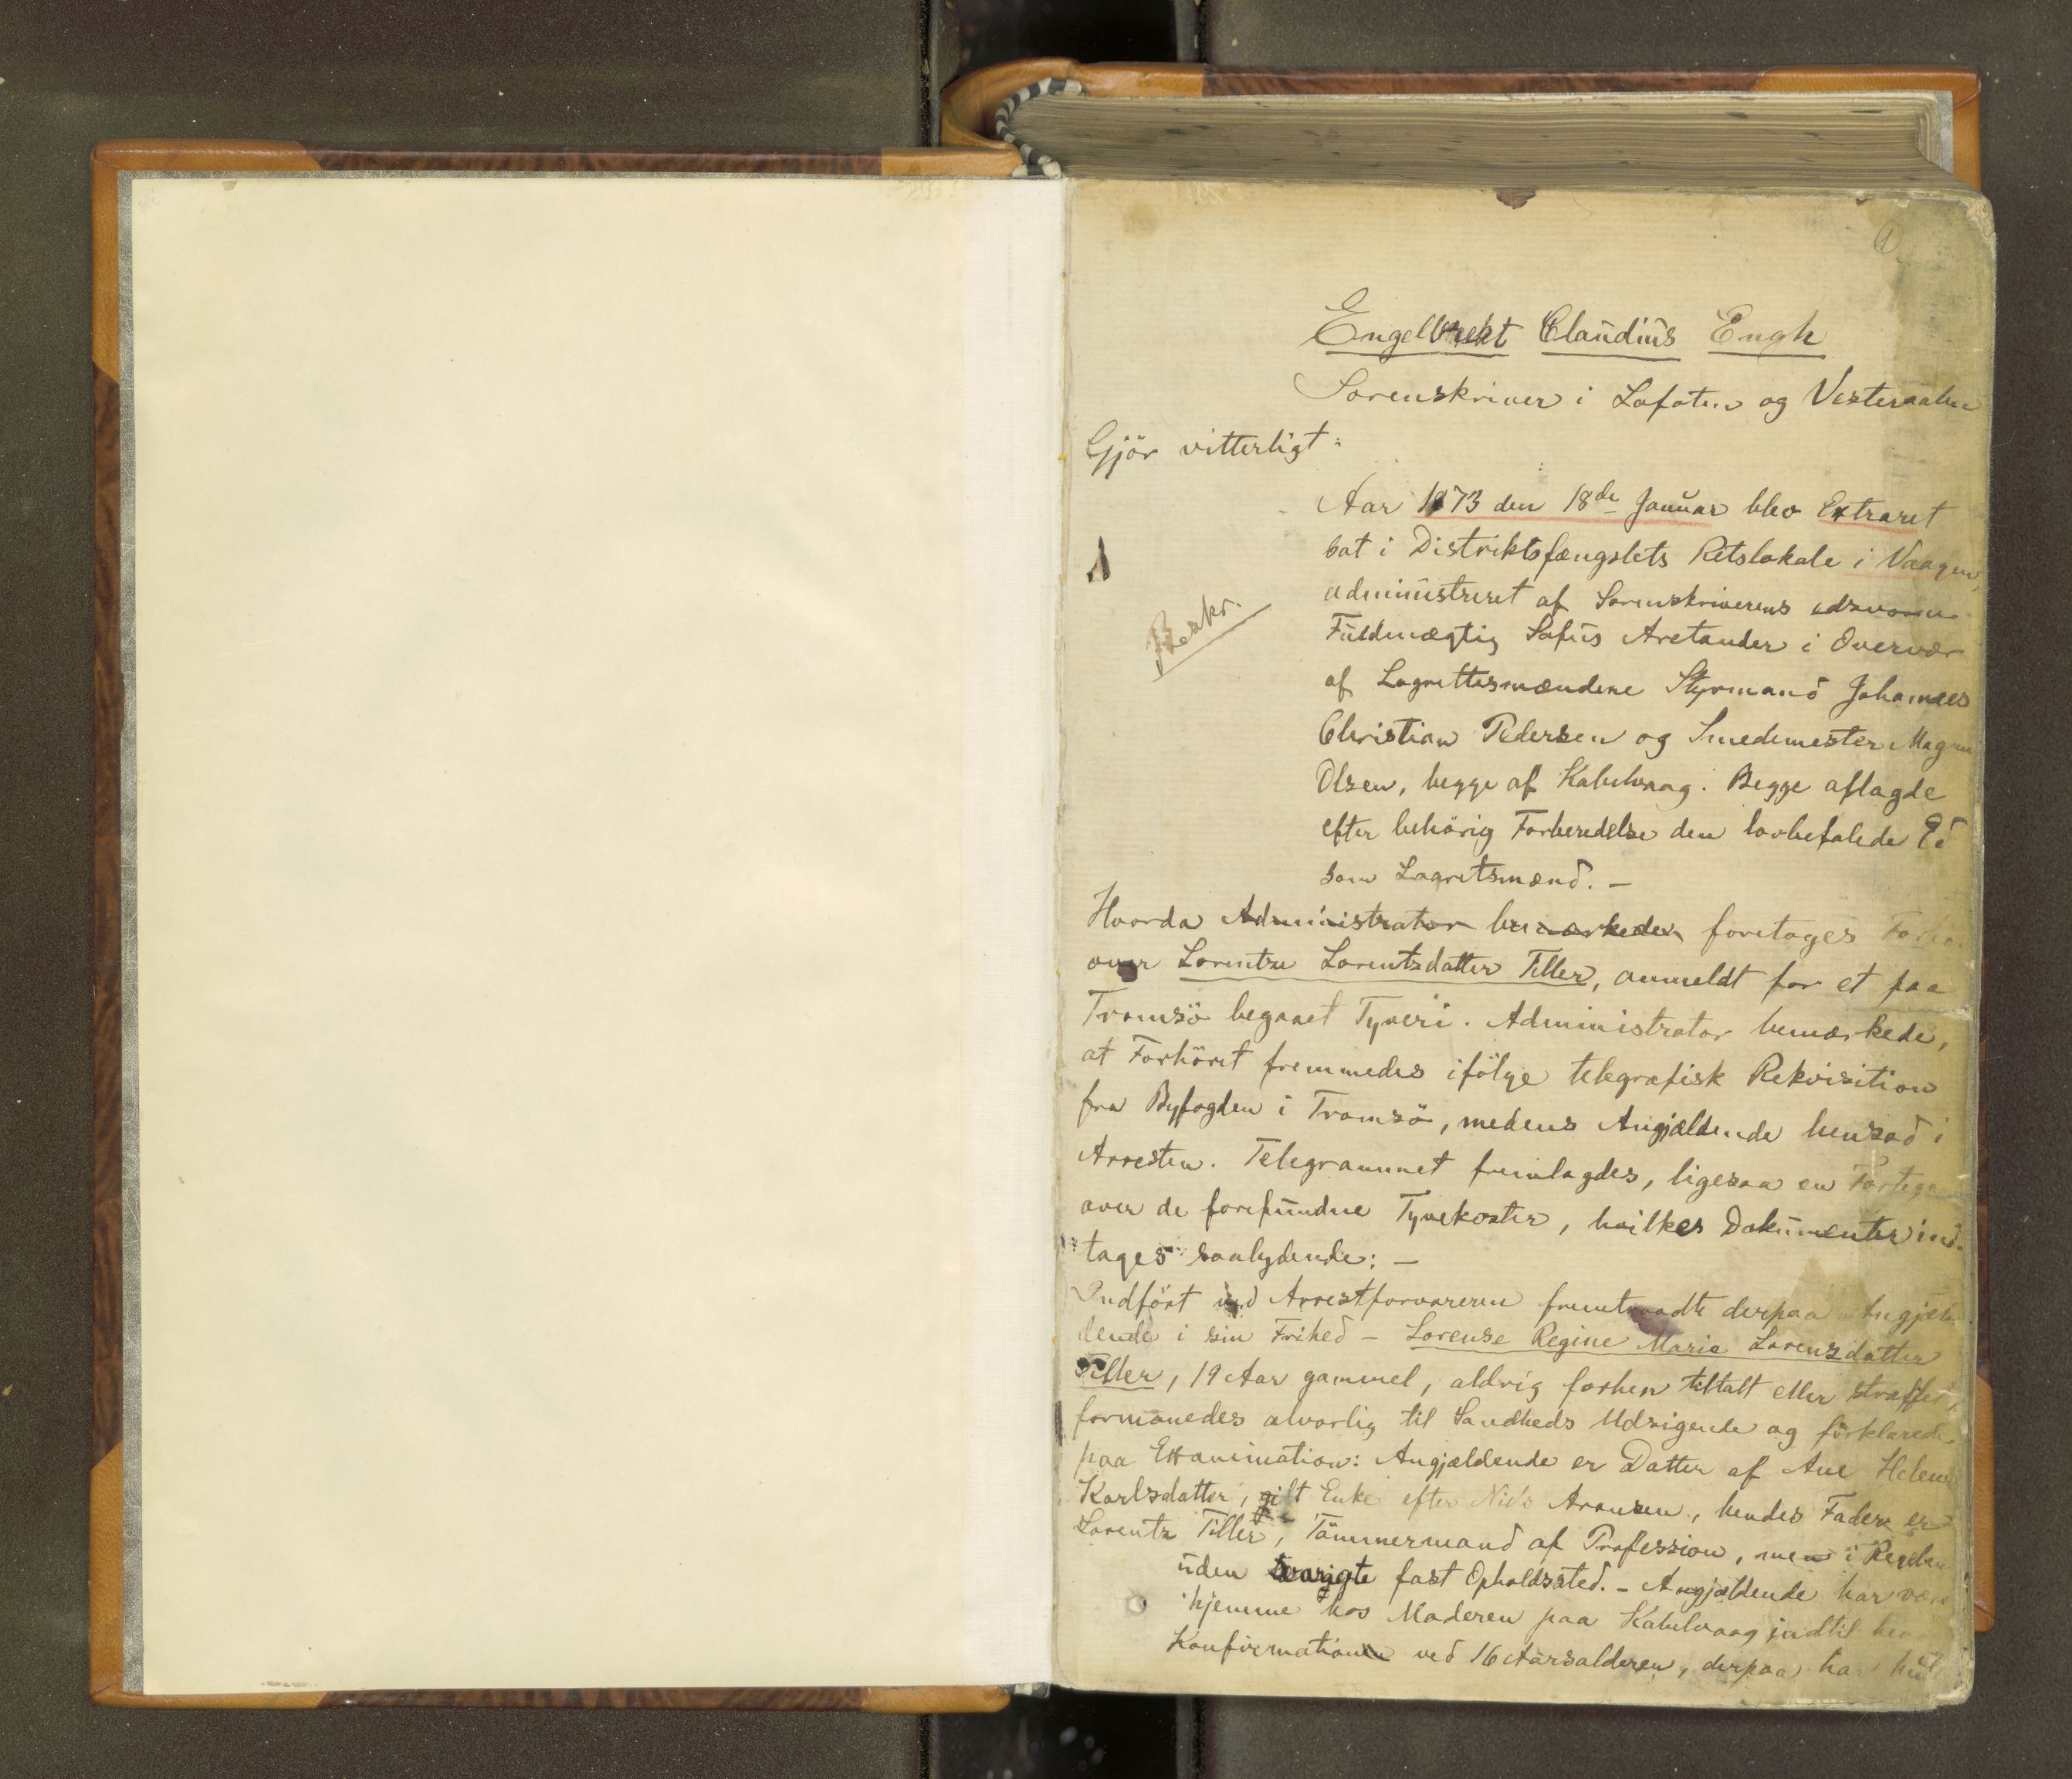 1
Engelbrekt Claudius Engh
Sorenskriver i Lofoten og Vesteraalen
Gjör vitterligt:
Aar 1873 den 18de Januar blev Extraret
sat i Distriktsfængslets Retslokale i Vaagen,
administreret af Sorenskriverens edsvorne
Fuldmægtig Sofus Aretander i Overvær
af Lagrettesmændene Styrmand Johannes
Christian Pedersen og Smedemester Magnus
Olsen, begge af Kabelvaag. Begge aflagde
efter behörig Forberedelse den lovbefalede Ed
som Lagretsmænd. —
1
Beskr.
Hvorda Administrator bemærkede, foretages
over Lorentze Lorentzdatter Tiller, anmeldt for et paa
Tromsö begaaet Tyveri. Administrator bemærkede,
at Forhöret fremmedes ifölge telegrafisk Rekvisition
fra Byfogden i Tromsö, medens Angjældende hensad i
Arresten. Telegrammet fremlagdes, ligesaa en
over de forefundne Tyvekoster, hvilkes Dokumenter ind-
tages saalydende: —
Indfört ved Arrestforvareren fremtraadte derpaa Angjæl-
dende i sin Frihed — Lorense Regine Marie Lorensdatter
Tiller, 19 Aar gammel, aldrig forhen tiltalt eller straffet,
formanedes alvorlig til Sandheds Udsigende og forklarede
paa Examination: Angjældende er Datter af Ane Helene
Karlsdatter, gift Enke efter Nils Aronsen, hendes Fader er
Lorentz Tiller, Tömmermand af Profession, men i Regelen
uden fast Opholdssted. — Angjældende har været
hjemme hos Moderen paa Kabelvaag indtil
Konfirmationen ved 16 Aarsalderen, derpaa har hun